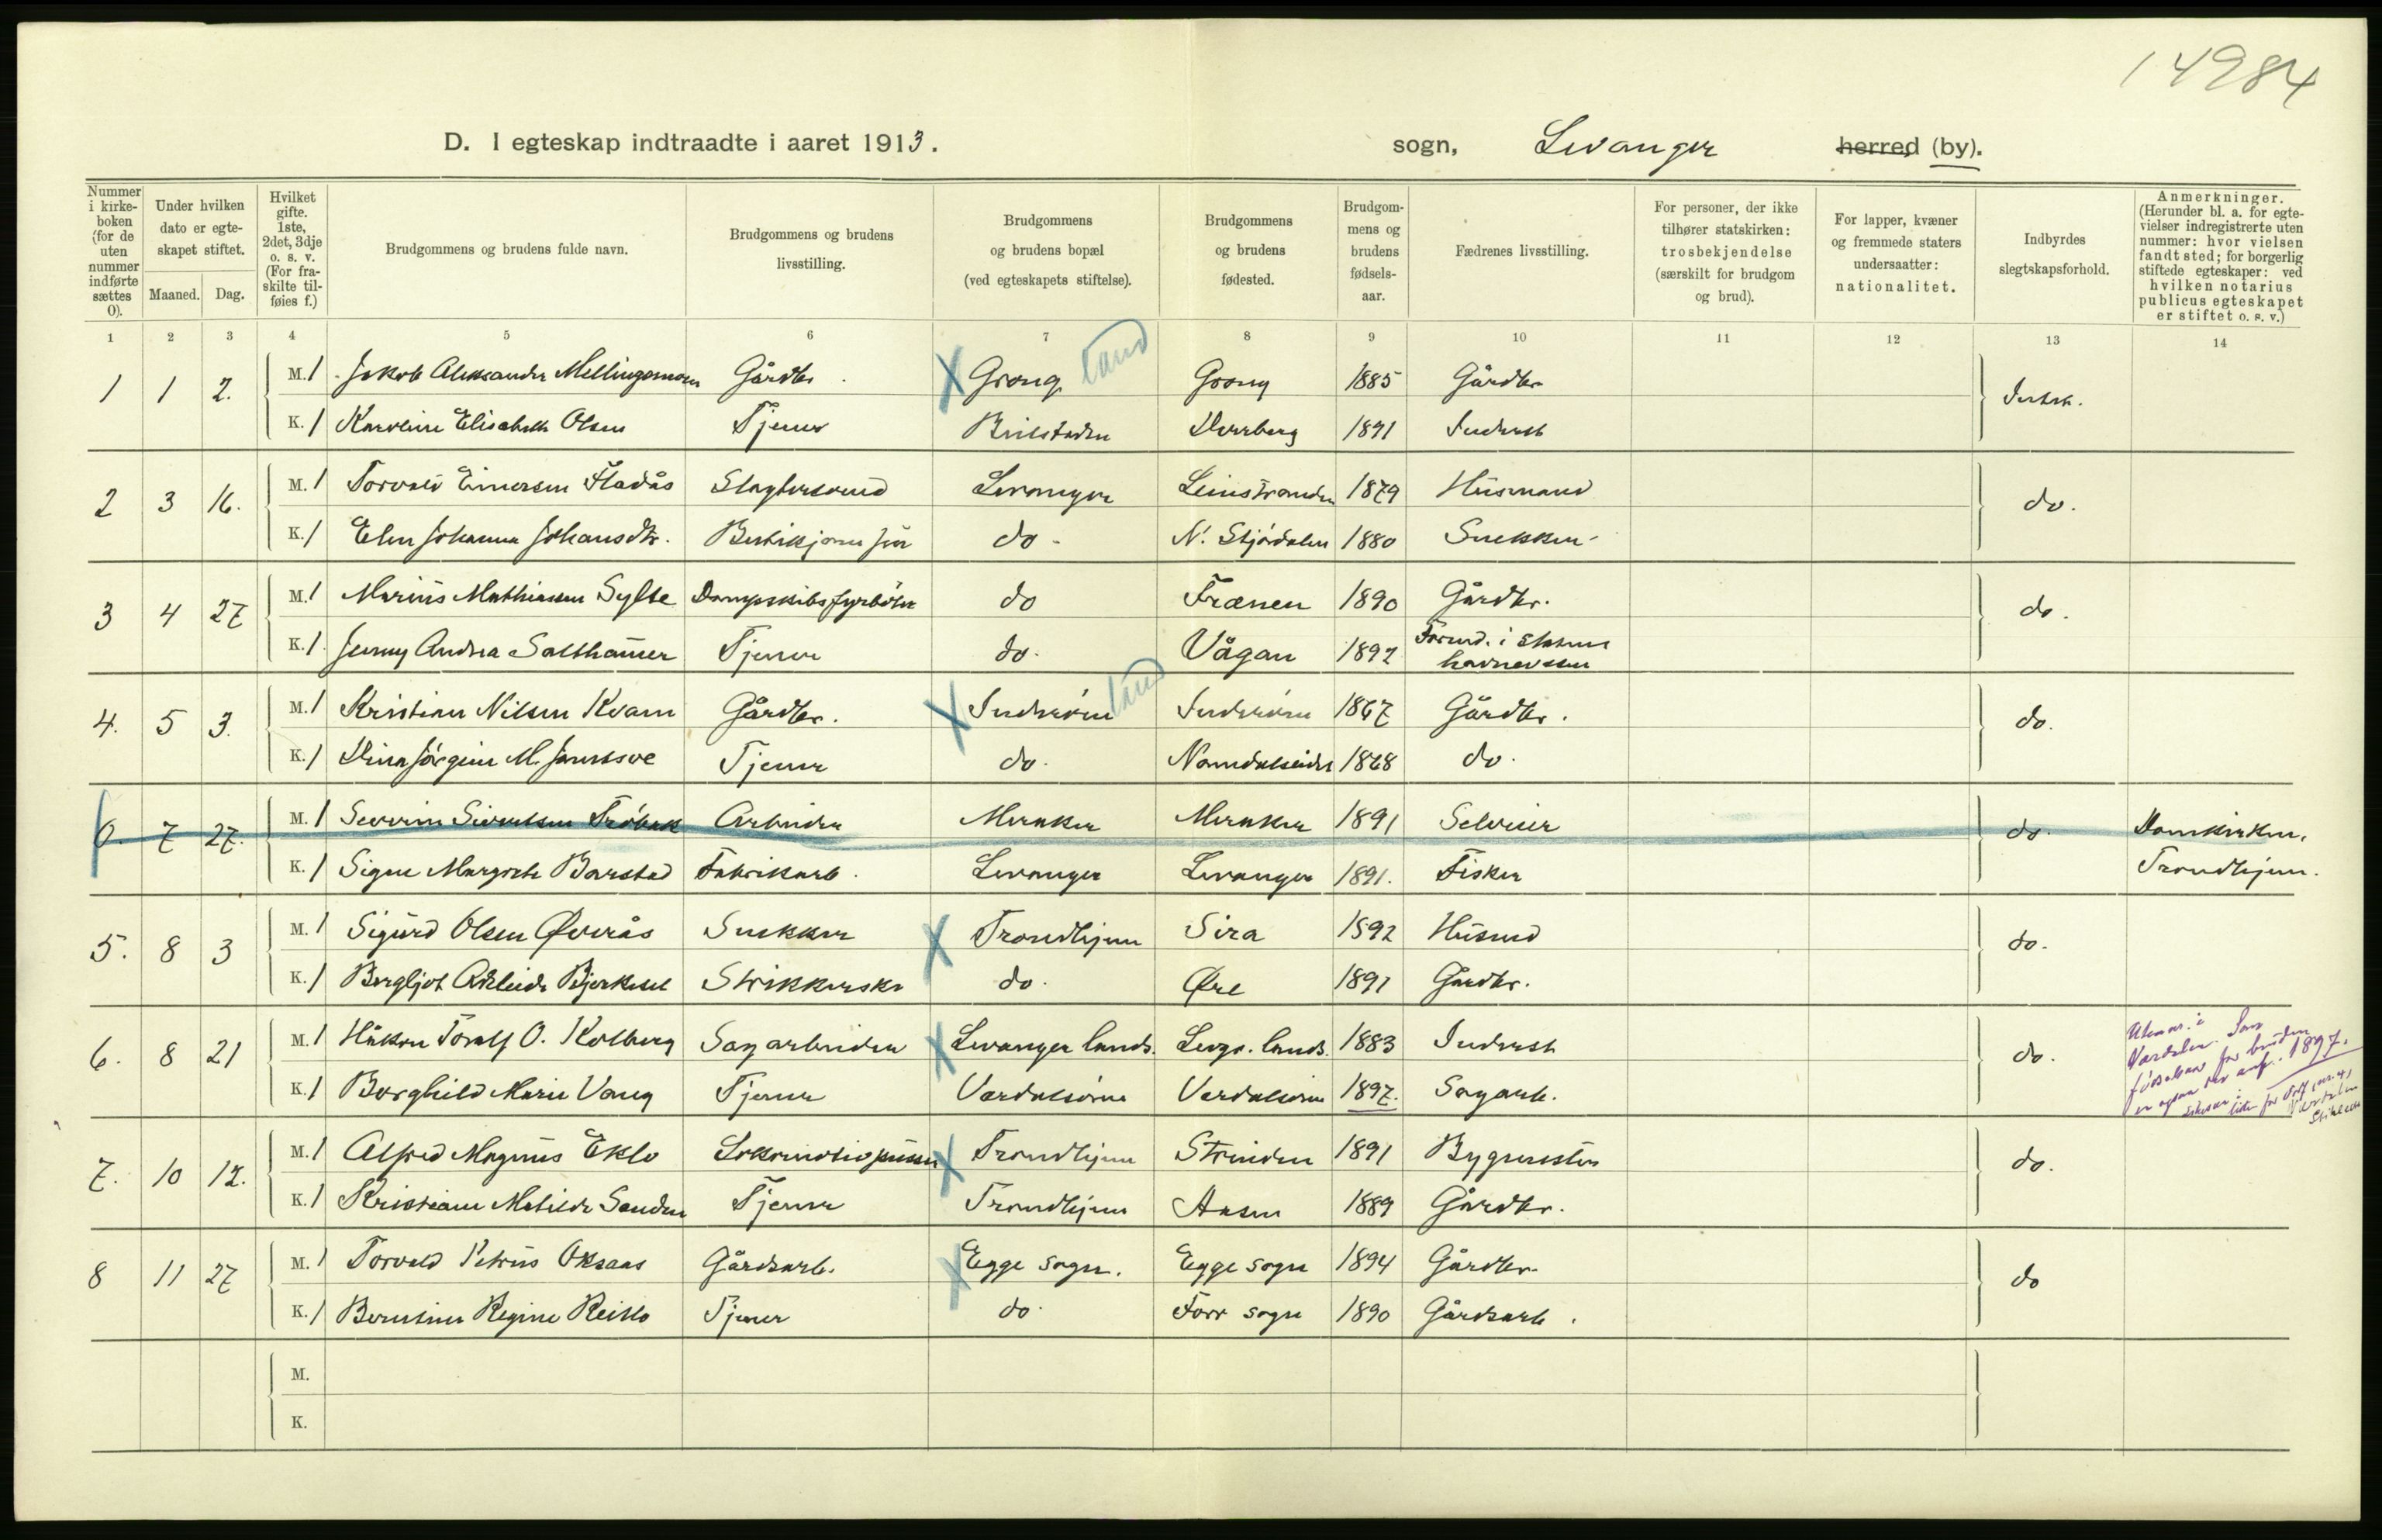 14984
D. I egteskap indtraadte i aaret 1913.
sogn, Levanger herred (by).
Nummer i kirke-boken (for de uten nummer indførte sættes 0).
Under hvilken dato er egte-skapet stiftet.
Maaned. Dag.
Hvilket gifte. 1ste, 2det, 3dje o. s. v. (For fra-skilte til-føies f.)
Brudgommens og brudens fulde navn.
Brudgommens og brudens livsstilling.
Brudgommens og brudens bopæl (ved egteskapets stiftelse).
Brudgommens og brudens fødested.
Brudgom-mens og brudens fødsels-aar.
Fædrenes livsstilling.
For personer, der ikke tilhører statskirken: trosbekjendelse (særskilt for brudgom og brud).
For lapper, kvæner og fremmede staters undersaatter: nationalitet.
Indbyrdes slegtskapsforhold.
Anmerkninger. (Herunder bl. a. for egte-vielser indregistrerte uten nummer: hvor vielsen fandt sted; for borgerlig stiftede egteskaper: ved hvilken notarius publicus egteskapet er stiftet o. s. v.)
1 2 3 4 5 6 7 8 9 10 11 12 13 14
1 1 2. M. 1 Jakob Aleksander Mellingsmoen Gårdbr. X Grong land Grong 1885 Gårdbr
K. 1 Karoline Elisabeth Olsen Tjener 1891
2 3 16. M. 1 Torvald Einersen Fladås Levanger Leinstranden 1879 Husmand do.
K. 1 Elen Johanna Johansdtr. do - N. Stjørdalen 1880 Snekker
3 4 27 M. 1 Marius Mathiassen Sylte Dampskibsfyrbøter do Frænen 1890 Gårdbr. do.
K. 1 Jenny Andrea Salthamer Tjener do. Vågan 1892 Formd. i statens havnevesen
4. 5 3. M. 1 Kristian Nilsen Kvam Gårdbr. X Inderøen land Inderøen 1867 Gårdbr. do.
K. 1 Tjener do. Namdalseidet 1868 do.
0. 7 27. M. 1 Severin Sivertsen Arbeider Meraker Meraker 1891 Selveier do. Domkirken,
K. 1 Signe Margrete Barstad Fabrikarb. Levanger Levanger 1891. Fisker Trondhjem.
5. 8 3 M. 1 Sigurd Olsen Øverås Snekker X Trondhjem Sira 1892 Husmd do.
K. 1 Bergljot Adeleide Bjerkeset Strikkerske do. Øre 1891 Gårdbr.
6. 8 21 M. 1 Håkon Toralf O. Kolberg Sagarbeider X Levanger lands. Levgr. lands. 1883 do.
K. 1 Borghild Marie Vang Tjener Værdalsøren Værdalsøren 1897. Sagarb.
Som fødselsaar for bruden er ogsaa der anf. 1897.
7. 10 12. M. 1 Alfred Magnus Eklo X Trondhjem Strinden 1891 Bygmester do.
K. 1 Kristiane Matilde Sanden Tjener Trondhjem Aasen 1889 Gårdbr.
8 11 27 M. 1 Torvald Petrus Oksaas Gårdsarb. X Egge sogn. Egge sogn 1894 Gårdbr. do
K. 1 Berntine Regine Reitlo Tjener do. Forr sogn 1890 Gårdsarb.
M.
K.